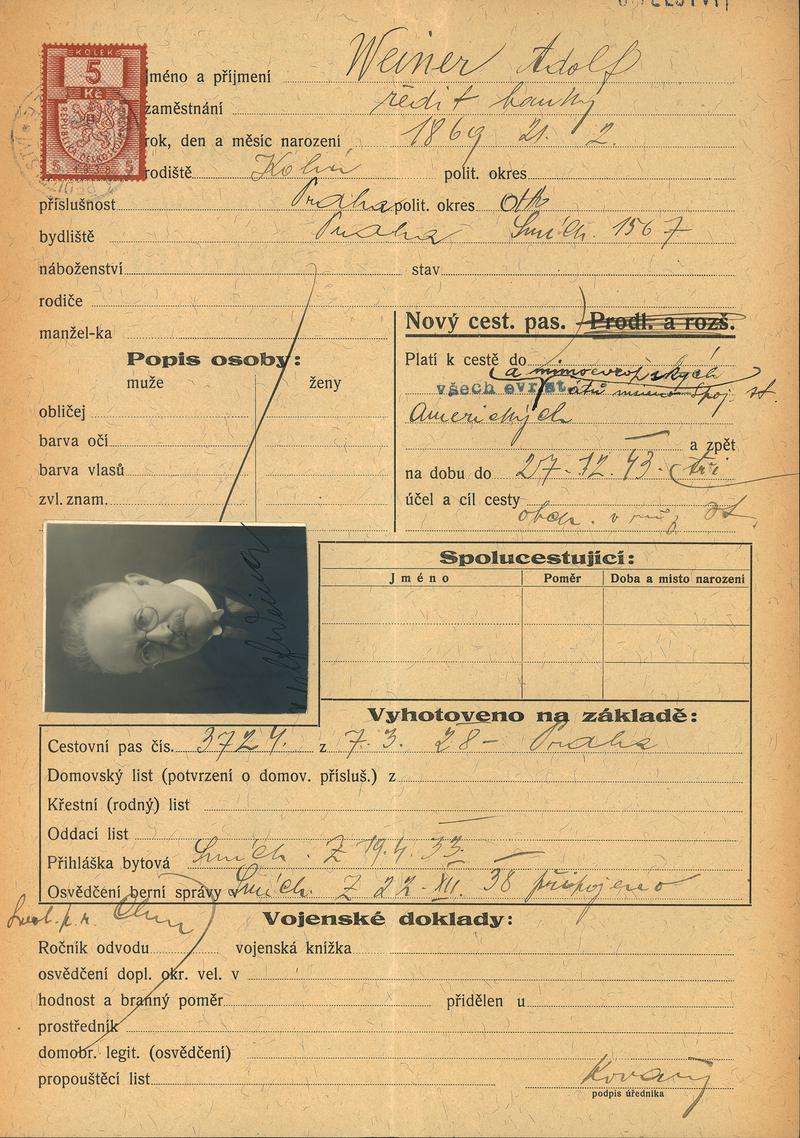 KOLEK
5
Kč
REPUBLIKA ČESKOSLOV
5 1938 5
Jméno a příjmení Weiner Adolf
zaměstnání ředit banky
rok, den a měsíc narození 1869 21. 2.
rodiště Kolín polit. okres
příslušnost Praha polit. okres
bydliště Praha Smích. 1567
náboženství stav
rodiče
manžel-ka
Nový cest. pas. Prodl. a rozš.
Popis osoby:
muže ženy
obličej
barva očí
barva vlasů
zvl. znam.
Platí k cestě do
a mimoevropských
všech evr. států mimo Spoj. st.
Amerických
a zpět
na dobu do 27.12.43. tři
účel a cíl cesty
obch.
Spolucestující:
Jméno Poměr Doba a místo narození
Vyhotoveno na základě:
Cestovní pas čís. 3724. z 7.3. 28 - Praha
Domovský list (potvrzení o domov. přísluš.) z
Křestní (rodný) list
Oddací list
Přihláška bytová Smích. Z 19.4.33.
Osvědčení berní správy v Smích. Z 22.XII. 38 připojeno
Vojenské doklady:
Ročník odvodu vojenská knížka
osvědčení dopl. okr. vel. v
hodnost a branný poměr přidělen u
prostředník
domobr. legit. (osvědčení)
propouštěcí list
podpis úředníka